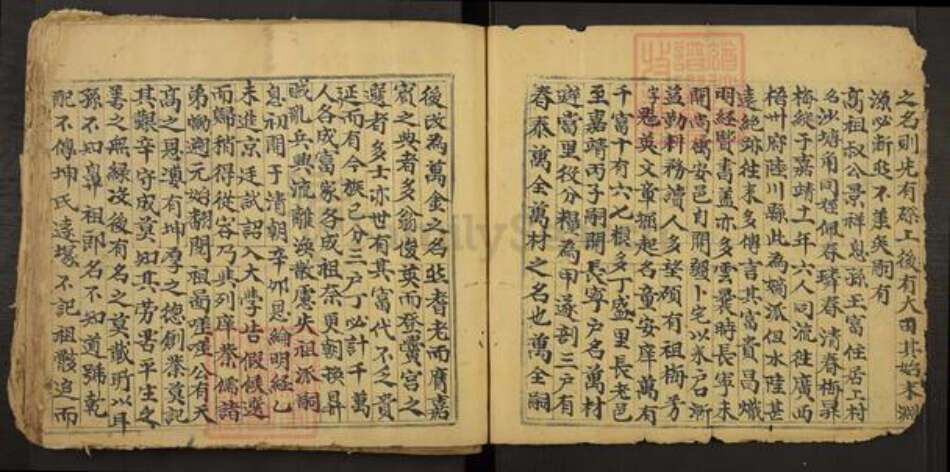 之名則先有磜上後有大田其始末淵
源必漸也不筆矣嗣有
高祖叔公景祥息孫玉富住居上村
名沙塘甬同經佩春璘春清春梅錄
梅綬于嘉靖十一年六人同流徃廣西
梧州府陸川縣此為嫡派但水陸甚
遠絕跡往來多傳言其富貴昌熾
明經豐書蓋亦多雲裳時長寧未
開尚屬安邑自開疆卜宅以來戶口漸
益勤耕務讀人多望碩有祖梅芳
字魁英文章挺起名童安庠萬有
千富十有六七根多丁盛里長老邑
至嘉靖丙子嗣開長寧戶名萬材
遊當里役分糧為甲遂剖三戶有
春泰萬全萬材之名也萬全嗣
後改為萬金之名世耆老而膺嘉
賓之典者多翁俊英而登黌宮之
選者多士亦世有其富代不乏貴
延而有今族已分三戶丁必計千萬
人各成富家各成祖奈更朝換昇
賊亂兵興流離渙散屢失祖派嗣
息初聞于清朝辛卯恩綸明經乙
未進京廷試詔入大學告假候選
而歸稍得從容乃共列庠蔡儒諸
弟慟遡元始翻閱祖啚嗟嗟公有天
高之恩湏有坤厚之德創業莫記
其艱辛守成莫知其勞畧平生之
善之無綠沒後有名之莫散所以耳
孫不知鼻祖郎名不知道號乾
配不傳坤氏遠塚不記祖骸迫而